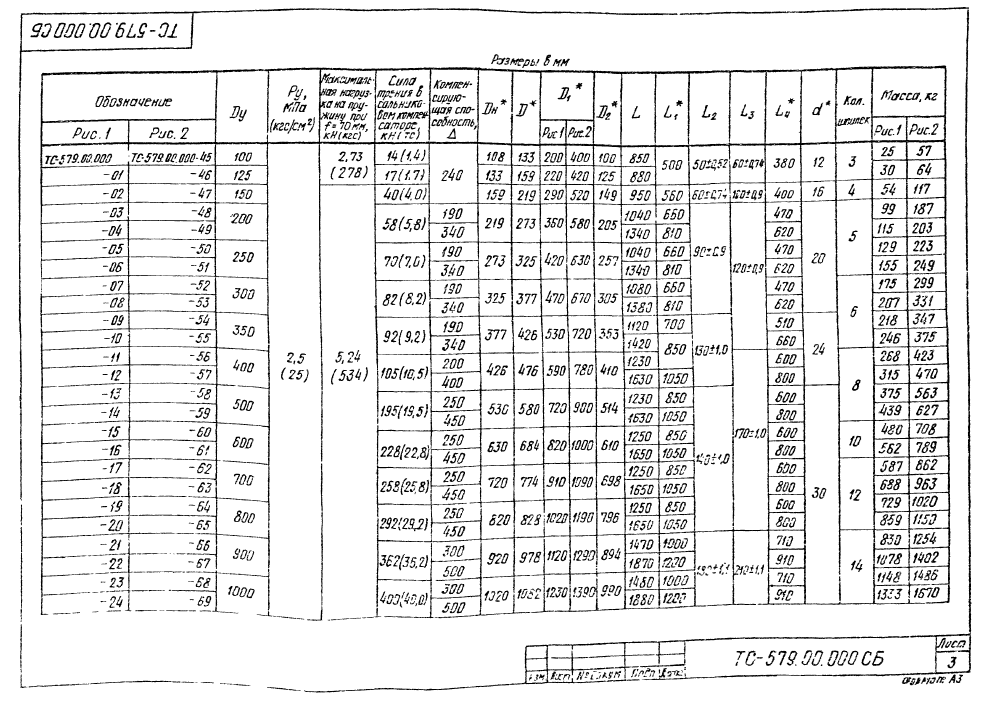 ТС-579.00.000 СБ
Размеры в мм
Обозначение | Dу | Ру, МПа (кгс/см²) | Максимальная нагрузка на пружину при f=70мм, кН(кгс) | Сила трения в сальниковом компенсаторе, кН(тс) | Компенсирующая способность, Δ | Dн* | D* | D₁* | D₂* | L | L₁* | L₂ | L₃ | L₄* | d* | Кол. шпилек | Масса, кг
Рис. 1 | Рис. 2 | Рис1 | Рис2 | Рис.1 | Рис.2
ТС-579.00.000 | ТС-579.00.000-45 | 100 | 2,5 (25) | 2,73 (278) | 14(1,4) | 240 | 108 | 133 | 200 | 400 | 100 | 850 | 500 | 50±0,62 | 60±0,74 | 380 | 12 | 3 | 25 | 57
-01 | -46 | 125 | 17(1,7) | 133 | 159 | 220 | 420 | 125 | 880 | 30 | 64
-02 | -47 | 150 | 5,24 (534) | 40(4,0) | 159 | 219 | 290 | 520 | 149 | 950 | 560 | 60±0,74 | 100±0,9 | 400 | 16 | 4 | 54 | 117
-03 | -48 | 200 | 58(5,8) | 190 | 219 | 273 | 360 | 580 | 205 | 1040 | 660 | 90±0,9 | 120±0,9 | 470 | 20 | 5 | 99 | 187
-04 | -49 | 340 | 1340 | 810 | 620 | 115 | 203
-05 | -50 | 250 | 70(7,0) | 190 | 273 | 325 | 420 | 630 | 257 | 1040 | 660 | 470 | 129 | 223
-06 | -51 | 340 | 1340 | 810 | 620 | 155 | 249
-07 | -52 | 300 | 82(8,2) | 190 | 325 | 377 | 470 | 670 | 305 | 1080 | 660 | 470 | 6 | 175 | 299
-08 | -53 | 340 | 1380 | 810 | 620 | 207 | 331
-09 | -54 | 350 | 92(9,2) | 190 | 377 | 426 | 530 | 720 | 353 | 1120 | 700 | 130±1,0 | 510 | 24 | 218 | 347
-10 | -55 | 340 | 1420 | 850 | 660 | 246 | 375
-11 | -56 | 400 | 105(10,5) | 200 | 426 | 476 | 590 | 780 | 410 | 1230 | 600 | 8 | 268 | 423
-12 | -57 | 400 | 1630 | 1050 | 800 | 315 | 470
-13 | -58 | 500 | 195(19,5) | 250 | 530 | 580 | 720 | 900 | 514 | 1230 | 850 | 140±1,0 | 170±1,0 | 600 | 30 | 375 | 563
-14 | -59 | 450 | 1630 | 1050 | 800 | 439 | 627
-15 | -60 | 600 | 228(22,8) | 250 | 630 | 684 | 820 | 1000 | 610 | 1250 | 850 | 600 | 10 | 480 | 708
-16 | -61 | 450 | 1650 | 1050 | 800 | 562 | 789
-17 | -62 | 700 | 258(25,8) | 250 | 720 | 774 | 910 | 1090 | 698 | 1250 | 850 | 600 | 12 | 587 | 862
-18 | -63 | 450 | 1650 | 1050 | 800 | 688 | 963
-19 | -64 | 800 | 292(29,2) | 250 | 820 | 828 | 1020 | 1190 | 796 | 1250 | 850 | 600 | 729 | 1020
-20 | -65 | 450 | 1650 | 1050 | 800 | 859 | 1150
-21 | -66 | 900 | 362(36,2) | 300 | 920 | 978 | 1120 | 1290 | 894 | 1470 | 1000 | 210±1,1 | 710 | 14 | 830 | 1254
-22 | -67 | 500 | 1870 | 1200 | 910 | 1078 | 1402
-23 | -68 | 1000 | 400(40,0) | 300 | 1020 | 1082 | 1230 | 1390 | 990 | 1480 | 1000 | 710 | 1148 | 1486
-24 | -69 | 500 | 1880 | 1200 | 910 | 1333 | 1670
Изм Лист № докум Подп Дата
ТС-579.00.000 СБ
Лист
3
Формат А3